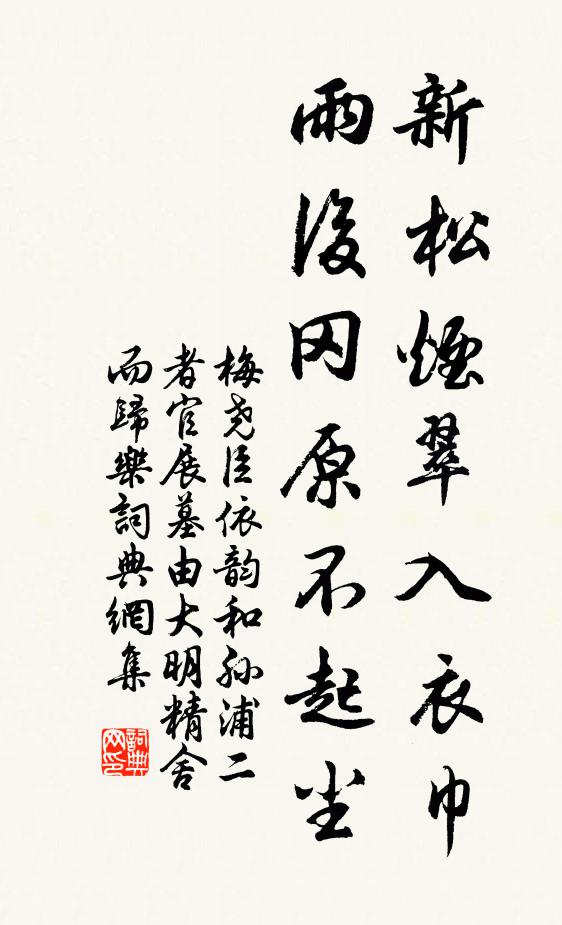 新松煙翠入衣巾
雨後冈原不起尘
梅尧臣依韵和孙浦二
者官展墓由大明精舍
而歸樂詞典網集
詞典
网印